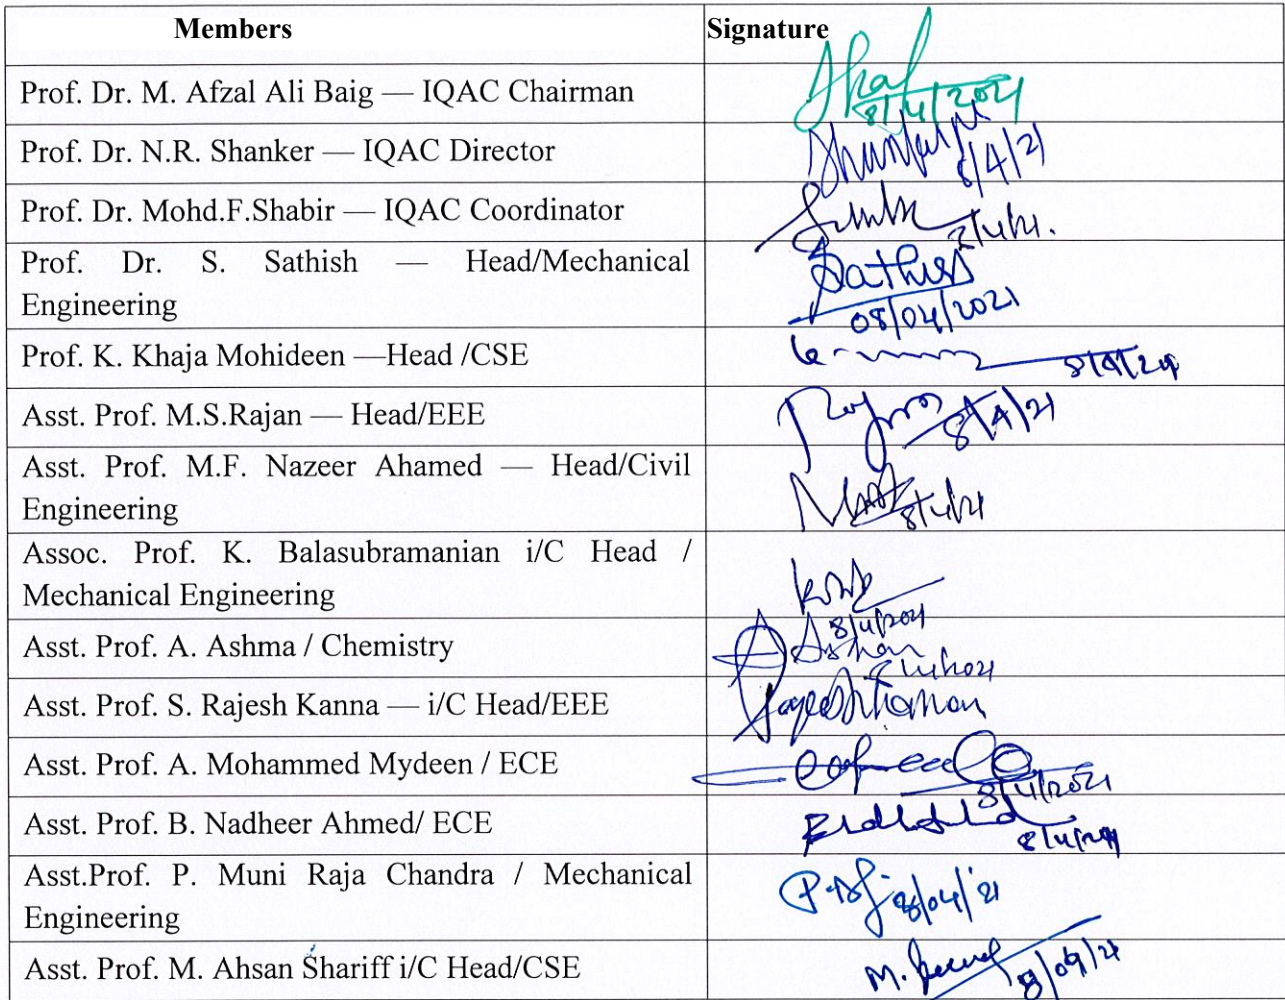 Members Signature
Prof. Dr. M. Afzal Ali Baig — IQAC Chairman
8/4/2021
Prof. Dr. N.R. Shanker — IQAC Director
8/4/21
Prof. Dr. Mohd.F.Shabir — IQAC Coordinator
8/4/21.
Prof. Dr. S. Sathish — Head/Mechanical
Engineering
Sathish
08/04/2021
Prof. K. Khaja Mohideen —Head /CSE
Asst. Prof. M.S.Rajan — Head/EEE
8/4/21
Asst. Prof. M.F. Nazeer Ahamed — Head/Civil
Engineering
8/4/21
Assoc. Prof. K. Balasubramanian i/C Head /
Mechanical Engineering
8/4/2021
Asst. Prof. A. Ashma / Chemistry
8/4/2021
Asst. Prof. S. Rajesh Kanna — i/C Head/EEE
Asst. Prof. A. Mohammed Mydeen / ECE
8/4/2021
Asst. Prof. B. Nadheer Ahmed/ ECE
Asst.Prof. P. Muni Raja Chandra / Mechanical
Engineering
8/04/'21
Asst. Prof. M. Ahsan Shariff i/C Head/CSE